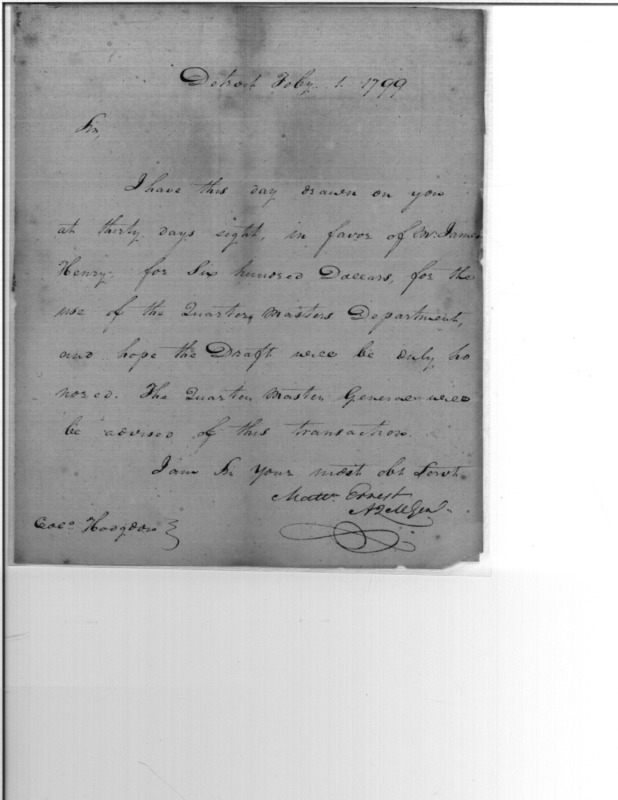 Detroit Feby. 1. 1799
Sir,
I have this day drawn on you
at thirty days sight, in favor of Mr. James
Henry, for Six hundred Dollars, for the
use of the Quarter Masters Department,
and hope the Draft will be duly ho
nored. The Quarter Master General will
be advised of this transaction.
I am Sir Your most obt Servt.
Mattw. Ernest
AQMGenl.
Colo. Hodgdon